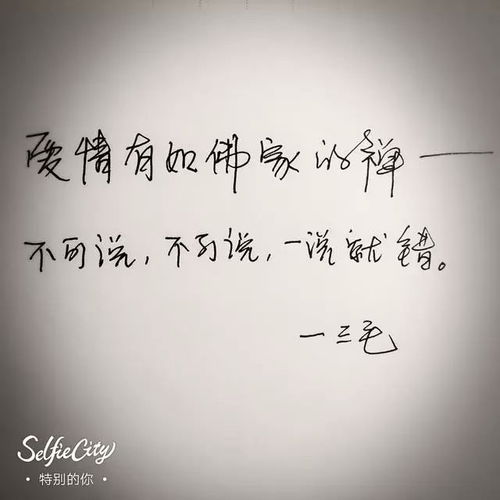 爱情有如佛家的禅——
不可说，不可说，一说就错。
—三毛
SelfieCity
·特别的你·